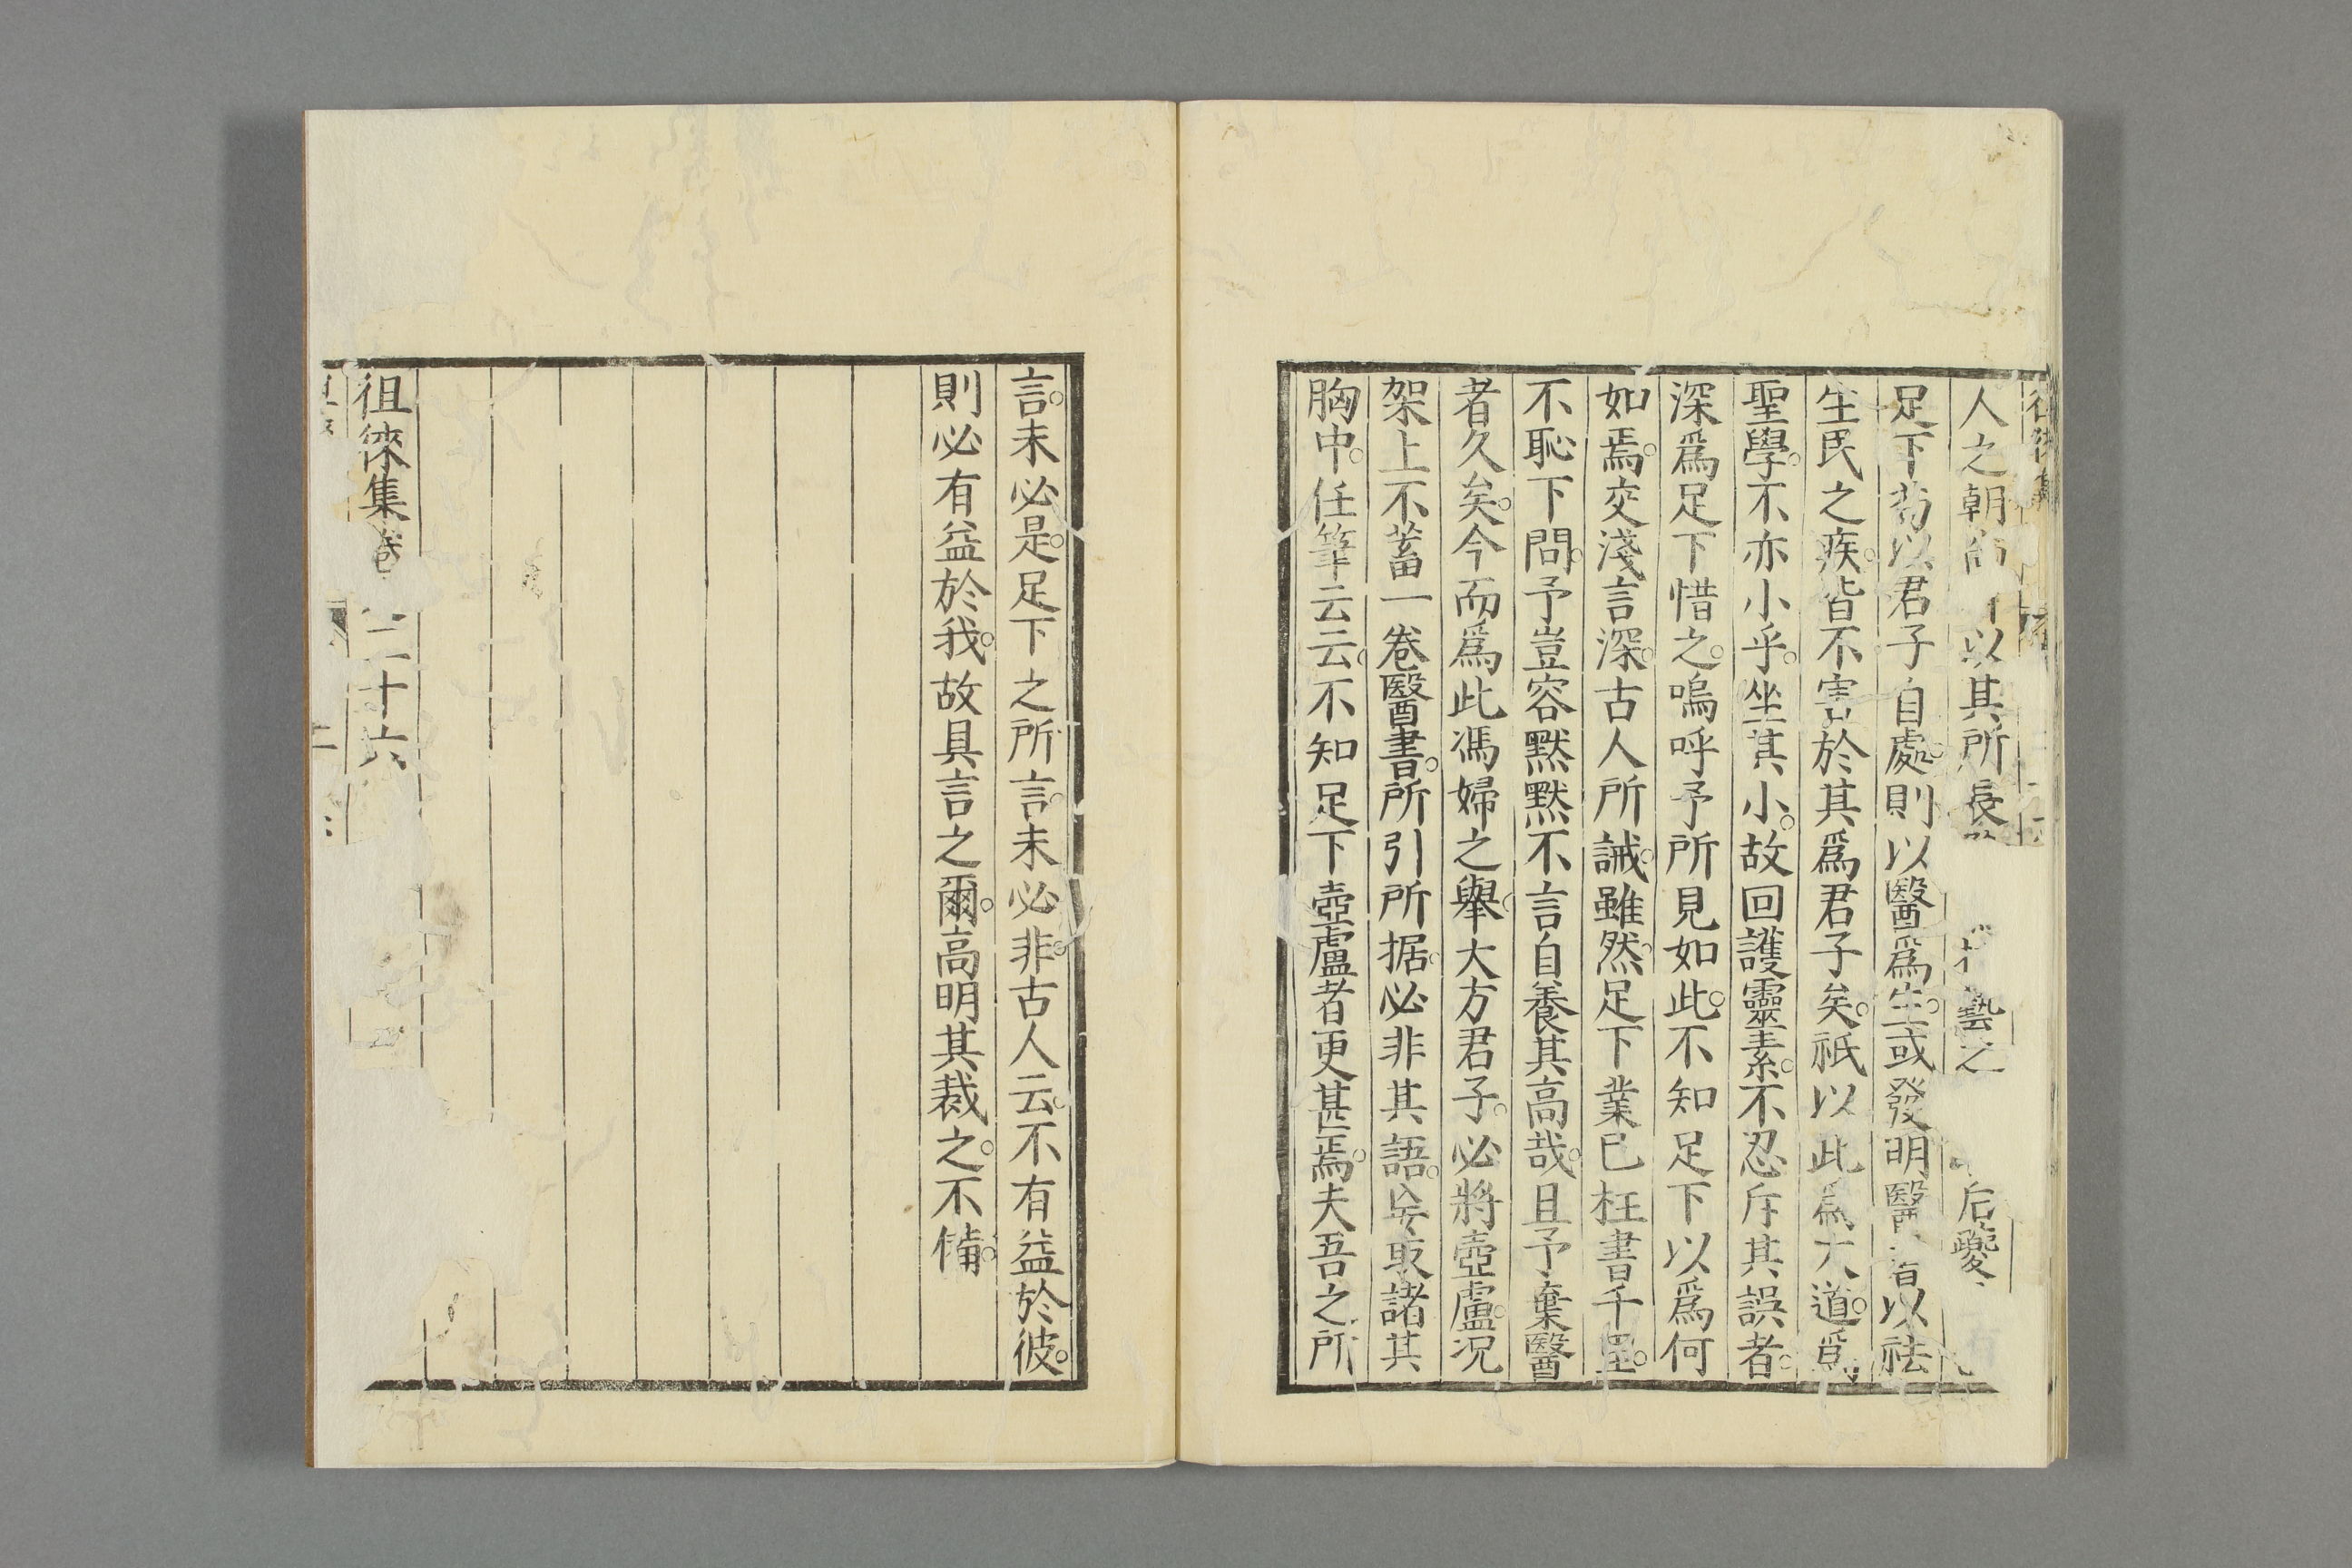 人之朝 以其所長 藝之 后夔
足下 以君子自處。則以醫爲生。或發明醫 以祛
生民之疾。皆不害於其爲君子矣。祇以此爲大道。爲
聖學。不亦小乎。坐其小。故回護靈素。不忍斥其誤者。
深爲足下惜之。嗚呼予所見如此。不知足下以爲何
如焉。交淺言深。古人所誡。雖然。足下業已枉書千里。
不恥下問。予豈容默默不言自養其高哉。且予棄醫
者久矣。今而爲此馮婦之舉。大方君子。必將壺盧。况
架上不蓄一卷醫書。所引所据。必非其語。妄取諸其
胸中。任筆云云。不知足下壺盧者更甚焉。夫吾之所
言。未必是。足下之所言。未必非。古人云。不有益於彼。
則必有益於我。故具言之爾。高明其裁之。不備。
徂徠集卷 二十六